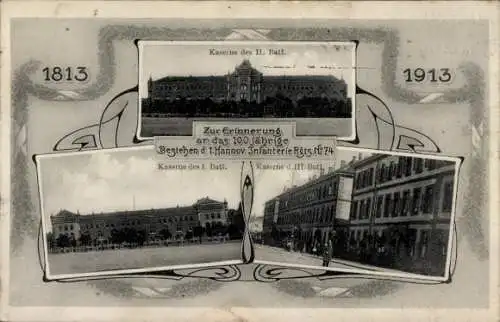 Kaserne des II. Batl.
1813
1913
Zur Erinnerung
an das 100 jährige
Bestehen d. 1. Hannov. Infanterie Rgts. No 74
Kaserne des I. Batl.
Kaserne d. III. Batl.